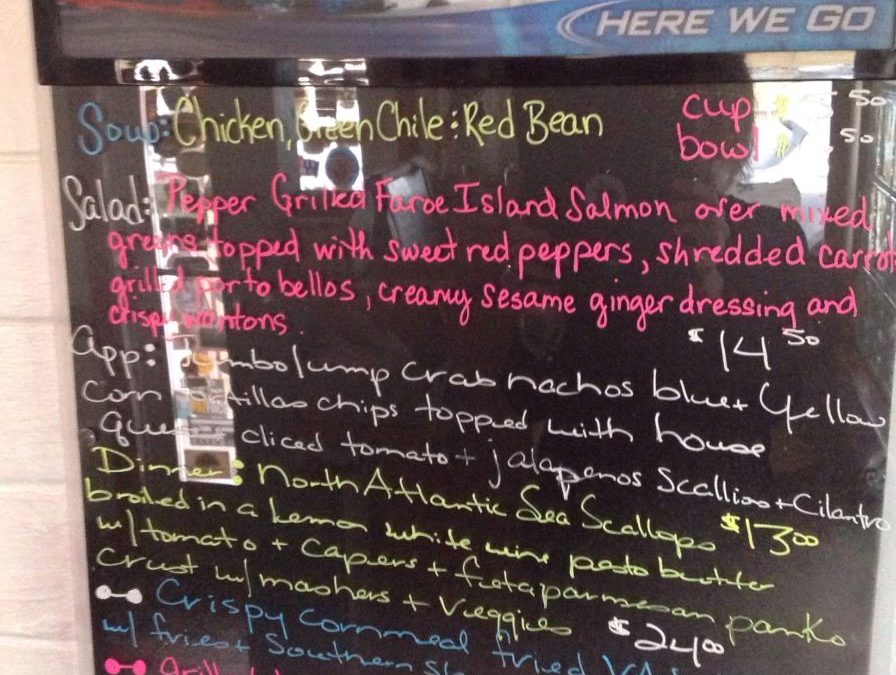 HERE WE GO
Soup: Chicken, Green Chile: Red Bean cup $ 50
bowl $ .50
Salad: Pepper Grilled Faroe Island Salmon over mixed
greens topped with sweet red peppers, shredded carrot
grilled portobellos, creamy sesame ginger dressing and
crispy wontons. $14 50
App: Jumbo lump crab nachos blue + yellow
corn tortillas chips topped with house
queso cliced tomato + jalapenos scallion + cilantro
$13 00
Dinner: North Atlantic Sea Scallops
broiled in a lemon white wine pesto butter
w/ tomato + capers + feta parmesan panko
crust w/ mashers + veggies $24 00
Crispy cornmeal fried VA
w/ fries + Southern
grill